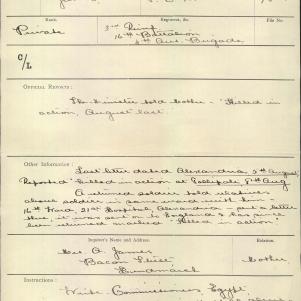 Rank.
Regiment, &c.
File No.
Private
3rd Reinf.
16th Battalion
4th Aus. Brigade
C/L
OFFICIAL REPORTS:
The Minister told Mother - "Killed in
action, August last
Other Information:
Last letter dated Alexandria, 5th August,
Reported killed in action at Gallipoli 8th Aug.
A returned soldier told relatives
above soldier in
16th Ward, 21st Hospital, Alexandria, and a letter
it was sent on to England & has since
been returned marked "Killed in action."
Inquirer's Name and Address
Relation.
Mrs. A. James
Mother
Bacon Street
Hindmarsh
Instructions:
Write Commissioners Egypt